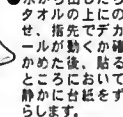 ●水から出したら
タオルの上にの
せ、指先でデカ
ールが動くか確
かめた後、貼る
ところにおいて
静かに台紙をず
らします。